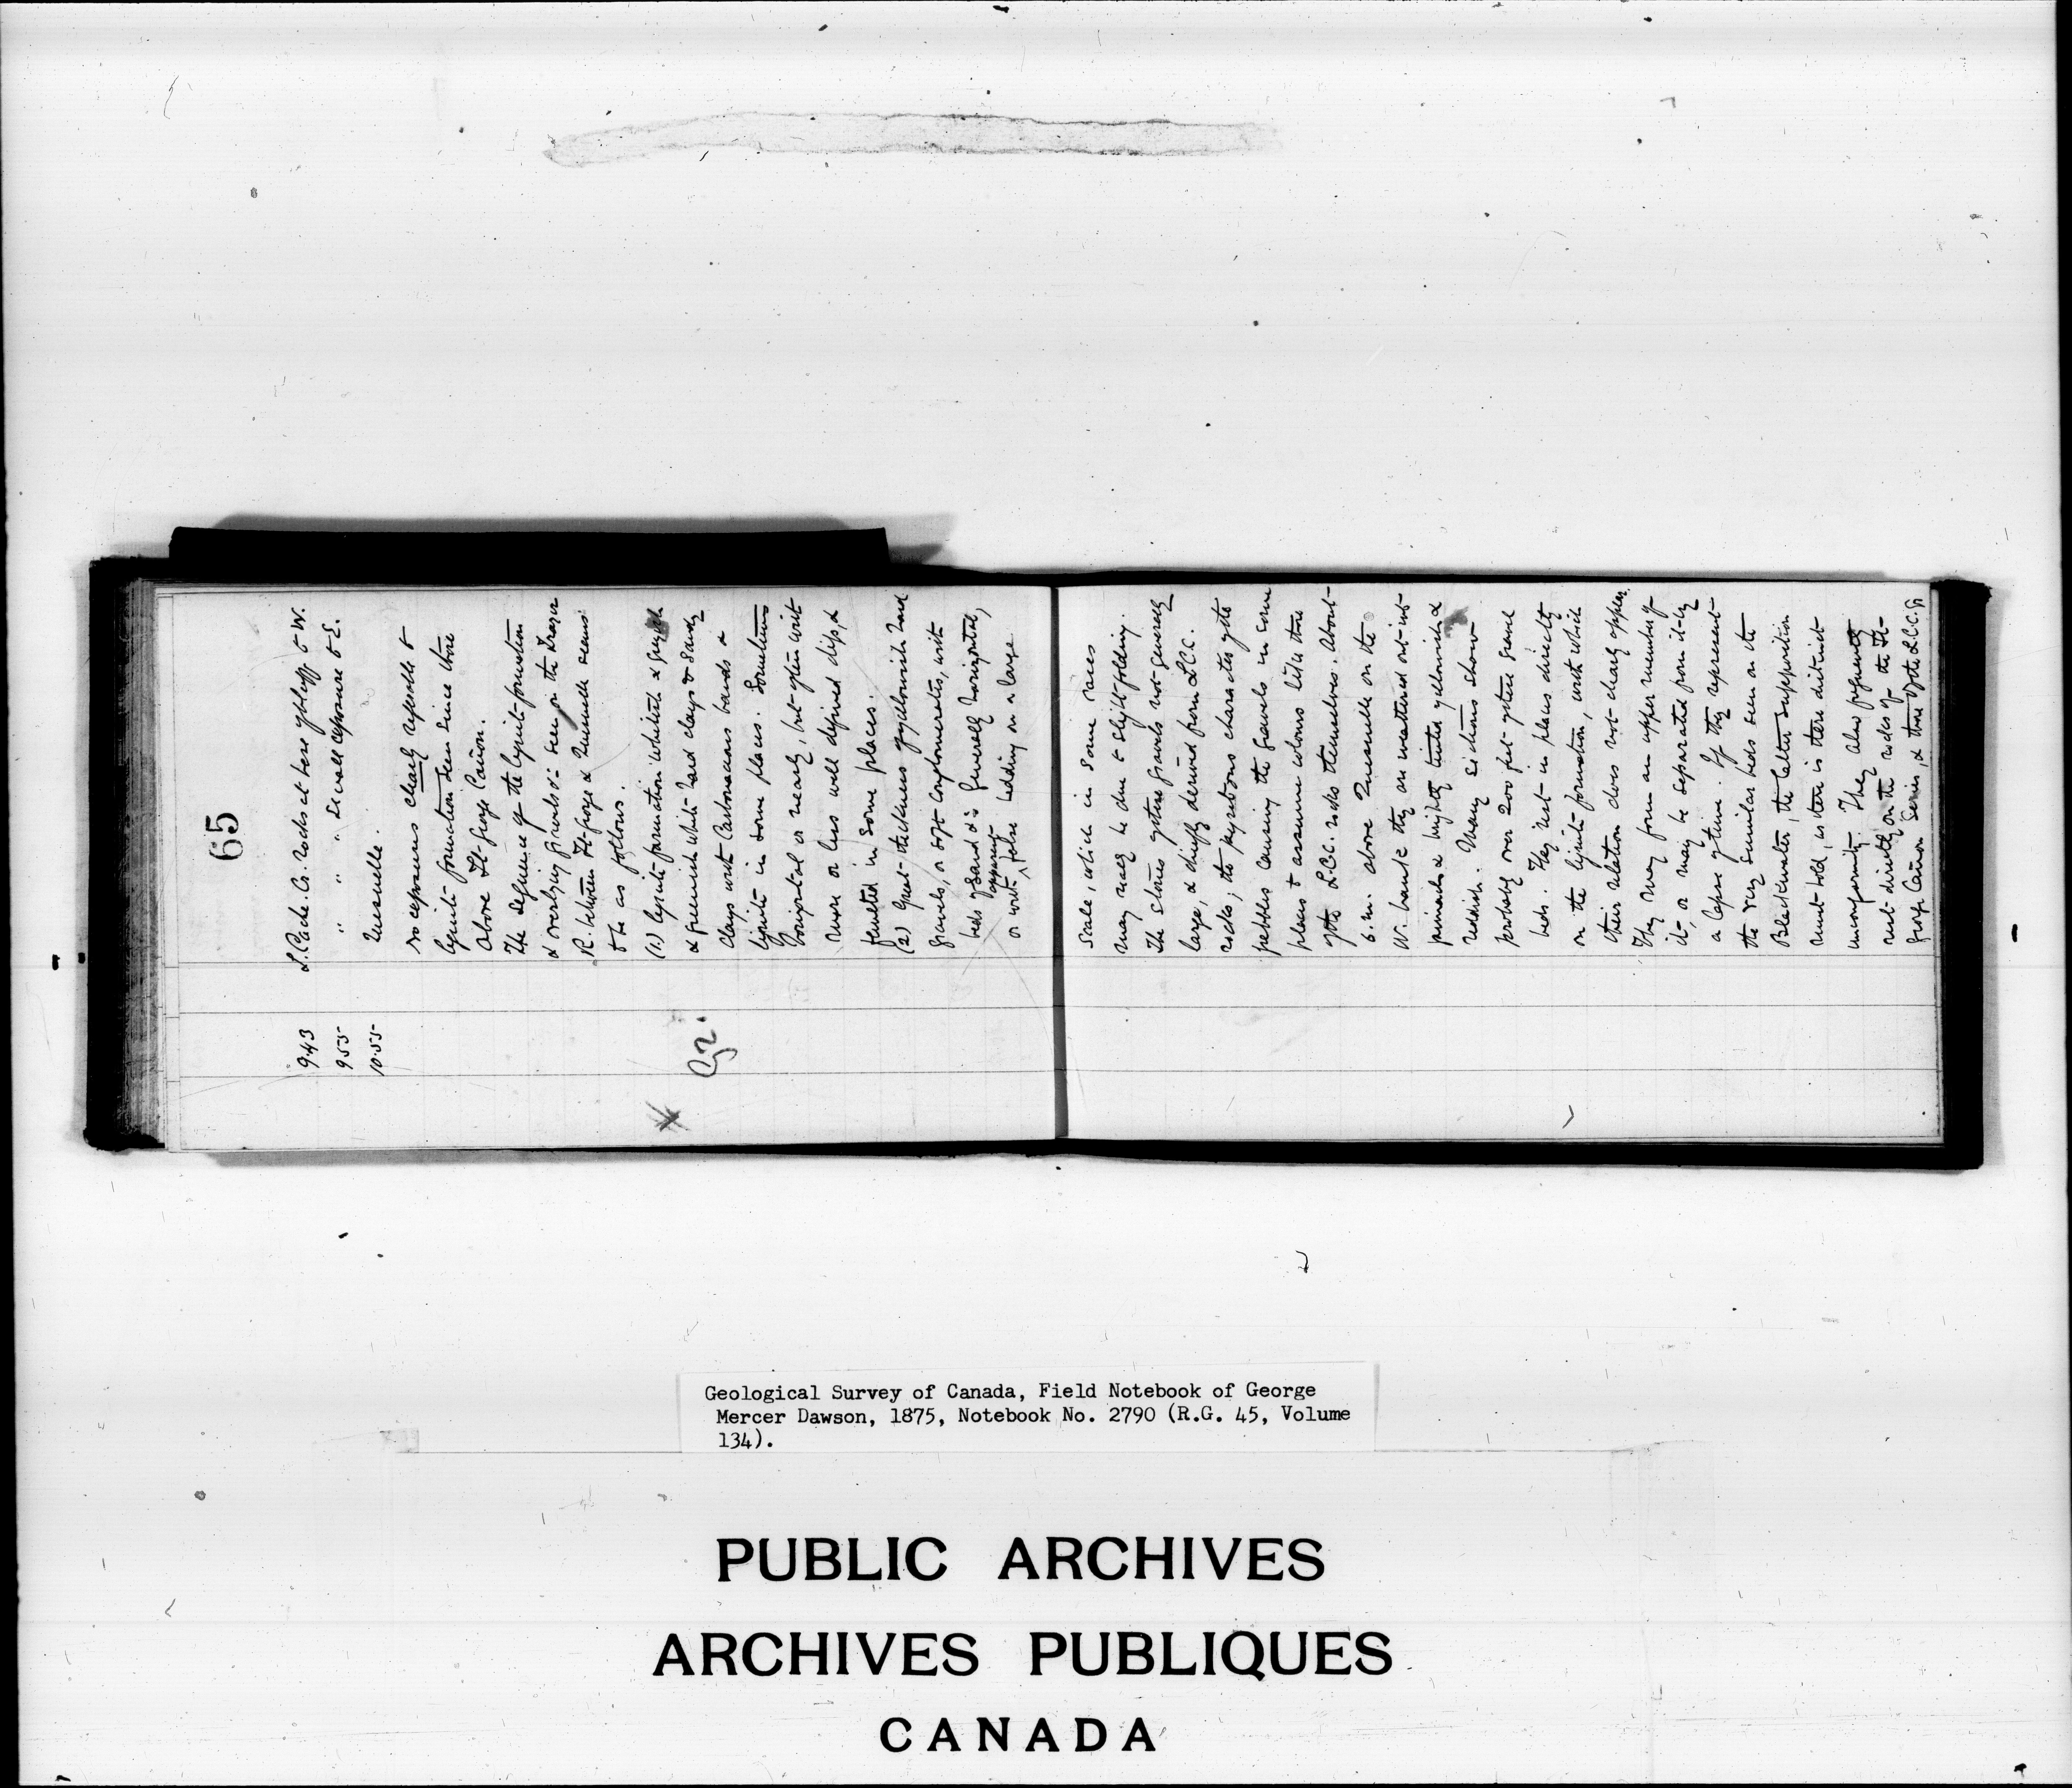 65
9.43 L. Cache. Cr. rocks at base of bluff to W.
9.55 " " " Small exposure to E.
10.55 Quesnelle.
No exposures clearly referable to
lignite formation seen since those
above Ft. George Cañon.
The sequence of the lignite formation
& overlying gravels &c seen on the Frazer
R. between Ft. George & Quesnelle seems
to be as follows.
(1.) Lignite formation whitish & greyish
& greenish white hard clays & sandy
Clays with Carbonaceous bands &
lignite in some places. Sometimes
horizontal or nearly, but often with
more or less well defined dips, &
faulted in some places.
(2) Great thickness of yellowish hard
gravels, or soft conglomerates, with
beds of sand &c generally horizontal,
or with apparent false bedding on a large
G2.
scale, which in some cases
may really be due to slight folding.
The stones of these gravels not generally
large, & chiefly derived from L.C.C.
rocks, the pyritous character of the
pebbles causing the gravels in some
places to assume colours like those
of the L.C.C. rocks themselves. About
6 m. above Quesnelle on the
W. bank they are weathered out into
pinnacles & brightly tinted yellowish &
reddish. Many sections show
probably over 200 feet of these gravel
beds. They rest in places directly
on the lignite formation, with which
their relation does not clearly appear.
They may form an upper member of
it, or may be separated from it by
a lapse of time. If they represent
the very similar beds seen on the
Blackwater, the latter supposition
must hold, as there is there distinct
unconformity. They also frequently
rest directly on the rocks of the Ft.
George Cañon Series, & those of the L.C.C. Gr
Geological Survey of Canada, Field Notebook of George
Mercer Dawson, 1875, Notebook No. 2790 (R.G. 45, Volume
134).
PUBLIC ARCHIVES
ARCHIVES PUBLIQUES
CANADA